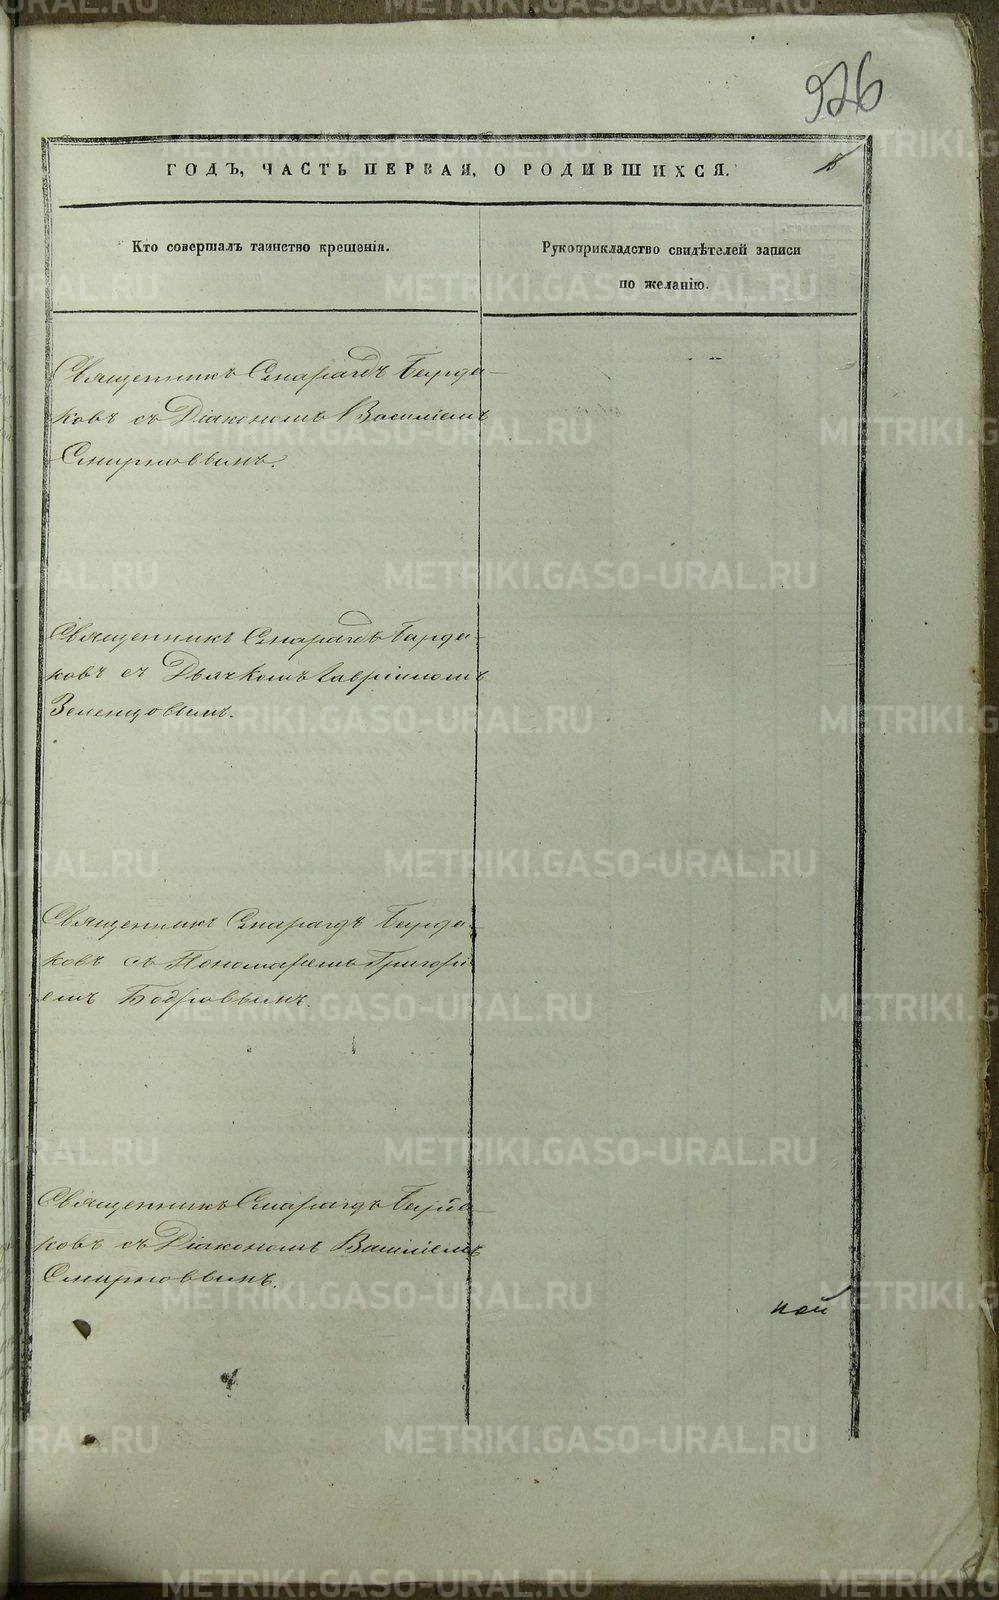 926
ГОДЪ, ЧАСТЬ ПЕРВАЯ, О РОДИВШИХСЯ.
Кто совершалъ таинство крещенія.
Рукоприкладство свидѣтелей записи
по желанію.
Священникъ Смарагдъ Бирда-
ковъ съ Діакономъ Василіемъ
Смирновымъ.
Священникъ Смарагдъ Бирда-
ковъ съ Дьячкомъ Гавріиломъ
Земенцовымъ.
Священникъ Смарагдъ Бирда-
ковъ съ Пономаремъ Григорі
емъ Бодровымъ.
Священникъ Смарагдъ Бирда-
ковъ съ Діакономъ Василіемъ
Смирновымъ.
ной
METRIKI.GASO-URAL.RU